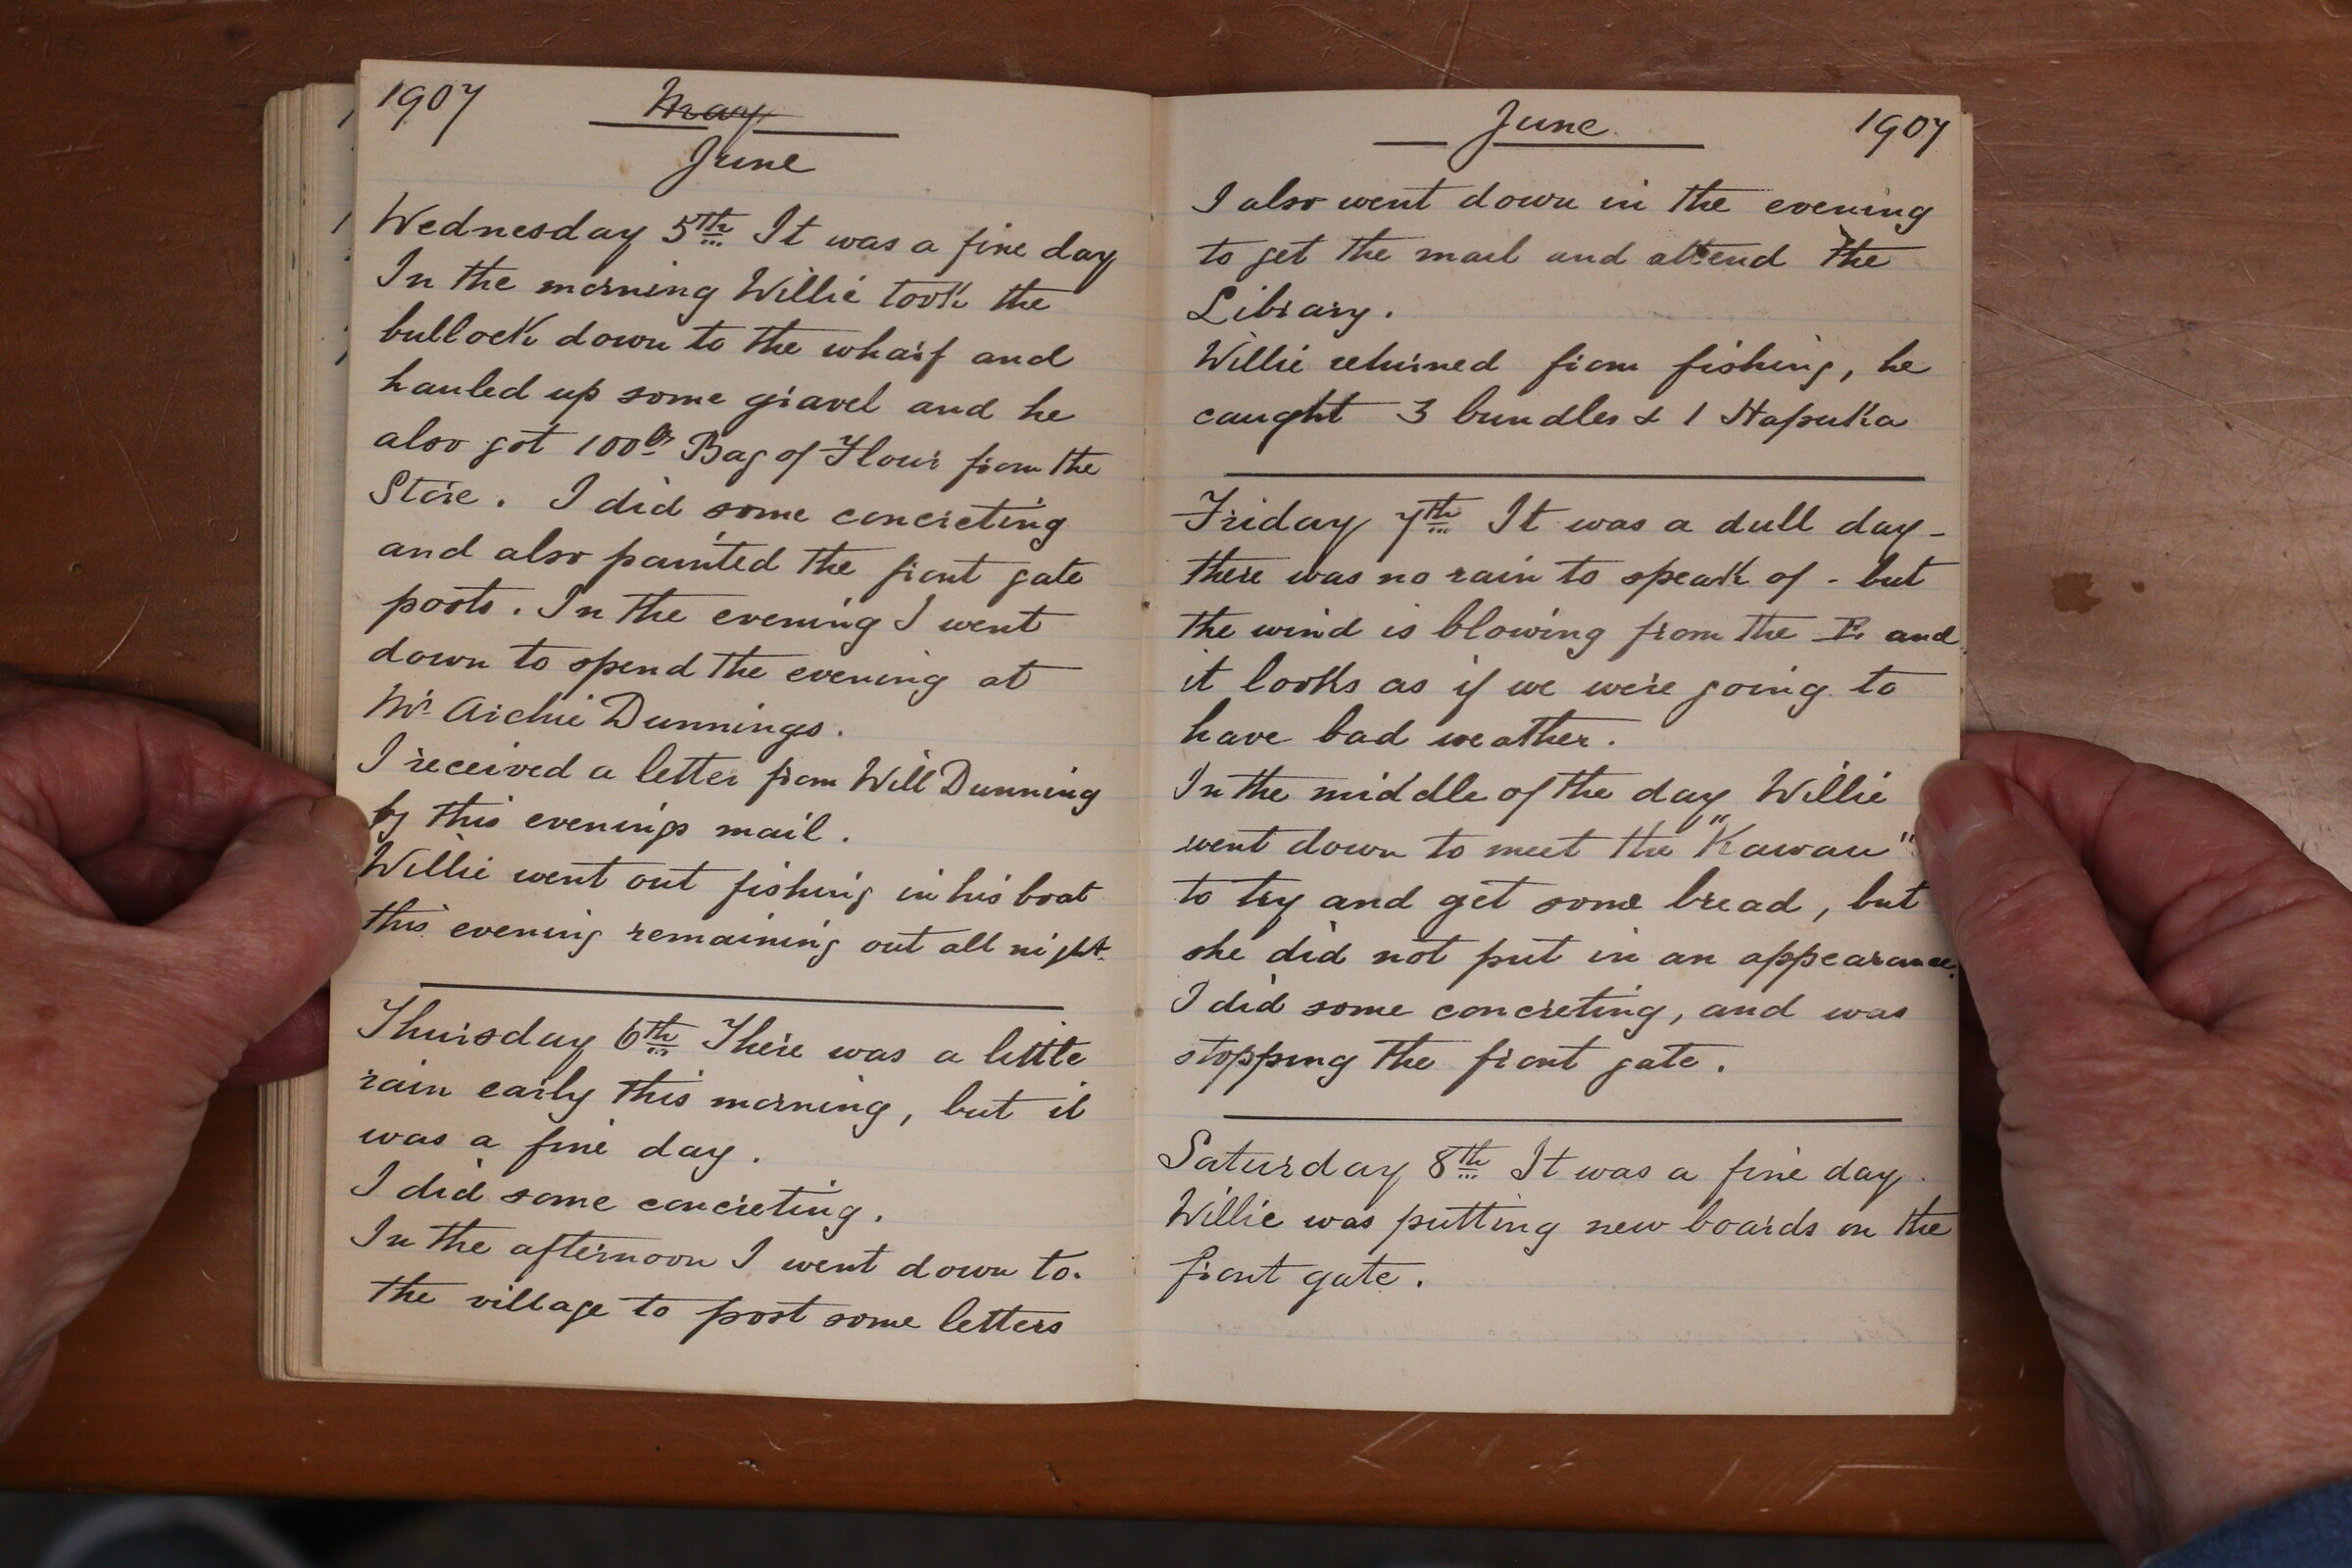 1907 May
June
Wednesday 5th It was a fine day
In the morning Willie took the
bullock down to the wharf and
hauled up some gravel and he
also got 100lb Bag of Flour from the
Store. I did some concreting
and also painted the front gate
posts. In the evening I went
down to spend the evening at
Mr Archie Dunnings.
I received a letter from Will Dunning
by this evenings mail.
Willie went out fishing in his boat
this evening remaining out all night.
Thursday 6th There was a little
rain early this morning, but it
was a fine day.
I did some concreting.
In the afternoon I went down to
the village to post some letters
June 1907
I also went down in the evening
to get the mail and attend the
Library.
Willie returned from fishing, he
caught 3 bundles & 1 Hapuka
Friday 7th It was a dull day -
there was no rain to speak of - but
the wind is blowing from the E. and
it looks as if we were going to
have bad weather.
In the middle of the day Willie
went down to meet the "Kawau"
to try and get some bread, but
she did not put in an appearance.
I did some concreting, and was
stopping the front gate.
Saturday 8th It was a fine day.
Willie was putting new boards on the
front gate.